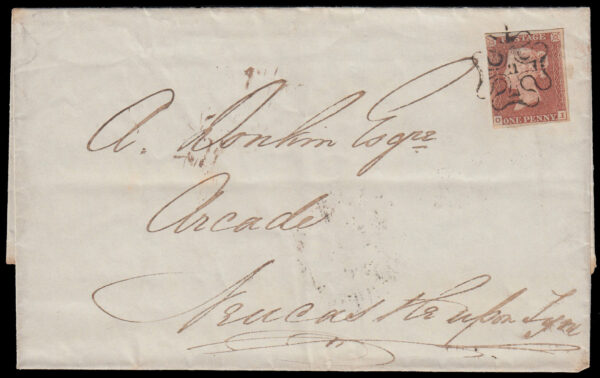 POSTAGE
O I
ONE PENNY
A. Donkin Esqre
Arcade
Newcastle upon Tyne